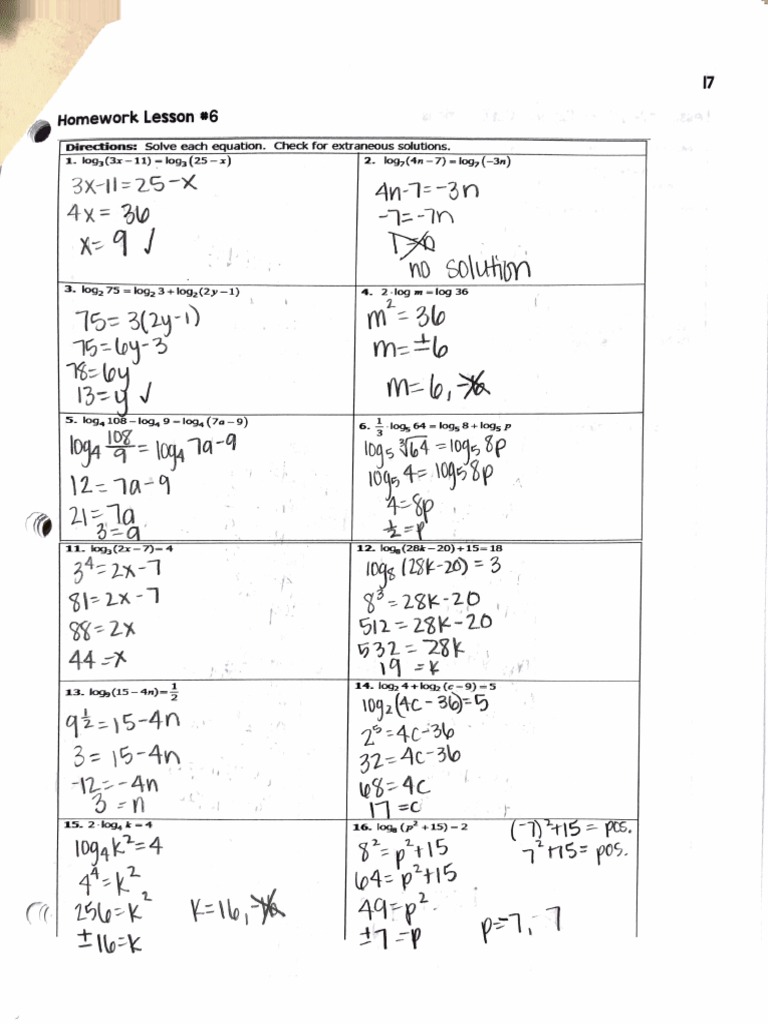 17
Homework Lesson #6
Directions: Solve each equation. Check for extraneous solutions.
1. log₃(3x – 11) = log₃(25 – x)
3x-11=25-x
4x= 36
x= 9 ✓
2. log₇(4n – 7) = log₇(–3n)
4n-7=-3n
-7=-7n
no solution
3. log₂ 75 = log₂ 3 + log₂(2y – 1)
75=3(2y-1)
75=6y-3
78=6y
13=y ✓
4. 2·log m = log 36
m²=36
m=±6
m=6, -6
5. log₄ 108 – log₄ 9 = log₄ (7a – 9)
log₄ 108/9 = log₄ 7a-9
12=7a-9
21=7a
3=a
6. 1/3 ·log₅ 64 = log₅ 8 + log₅ p
log₅ ∛64 = log₅ 8p
log₅ 4= log₅ 8p
4=8p
½=p
11. log₃(2x – 7) = 4
3⁴=2x-7
81=2x-7
88=2x
44=x
12. log₈(28k – 20) + 15 = 18
log₈ (28k-20) = 3
8³=28k-20
512=28k-20
532= 28k
19 =k
13. log₉(15 – 4n) = 1/2
9½=15-4n
3= 15-4n
-12=-4n
3 =n
14. log₂ 4 + log₂ (c – 9) = 5
log₂(4c-36)=5
2⁵=4c-36
32=4c-36
68=4c
17 =c
15. 2·log₄ k = 4
log₄k²=4
4⁴=k²
256=k²
±16=k
k=16, -16
16. log₈ (p² + 15) = 2
8²=p²+15
64=p²+15
49=p²
±7=p
(-7)²+15= pos.
7²+15= pos.
p=7, -7